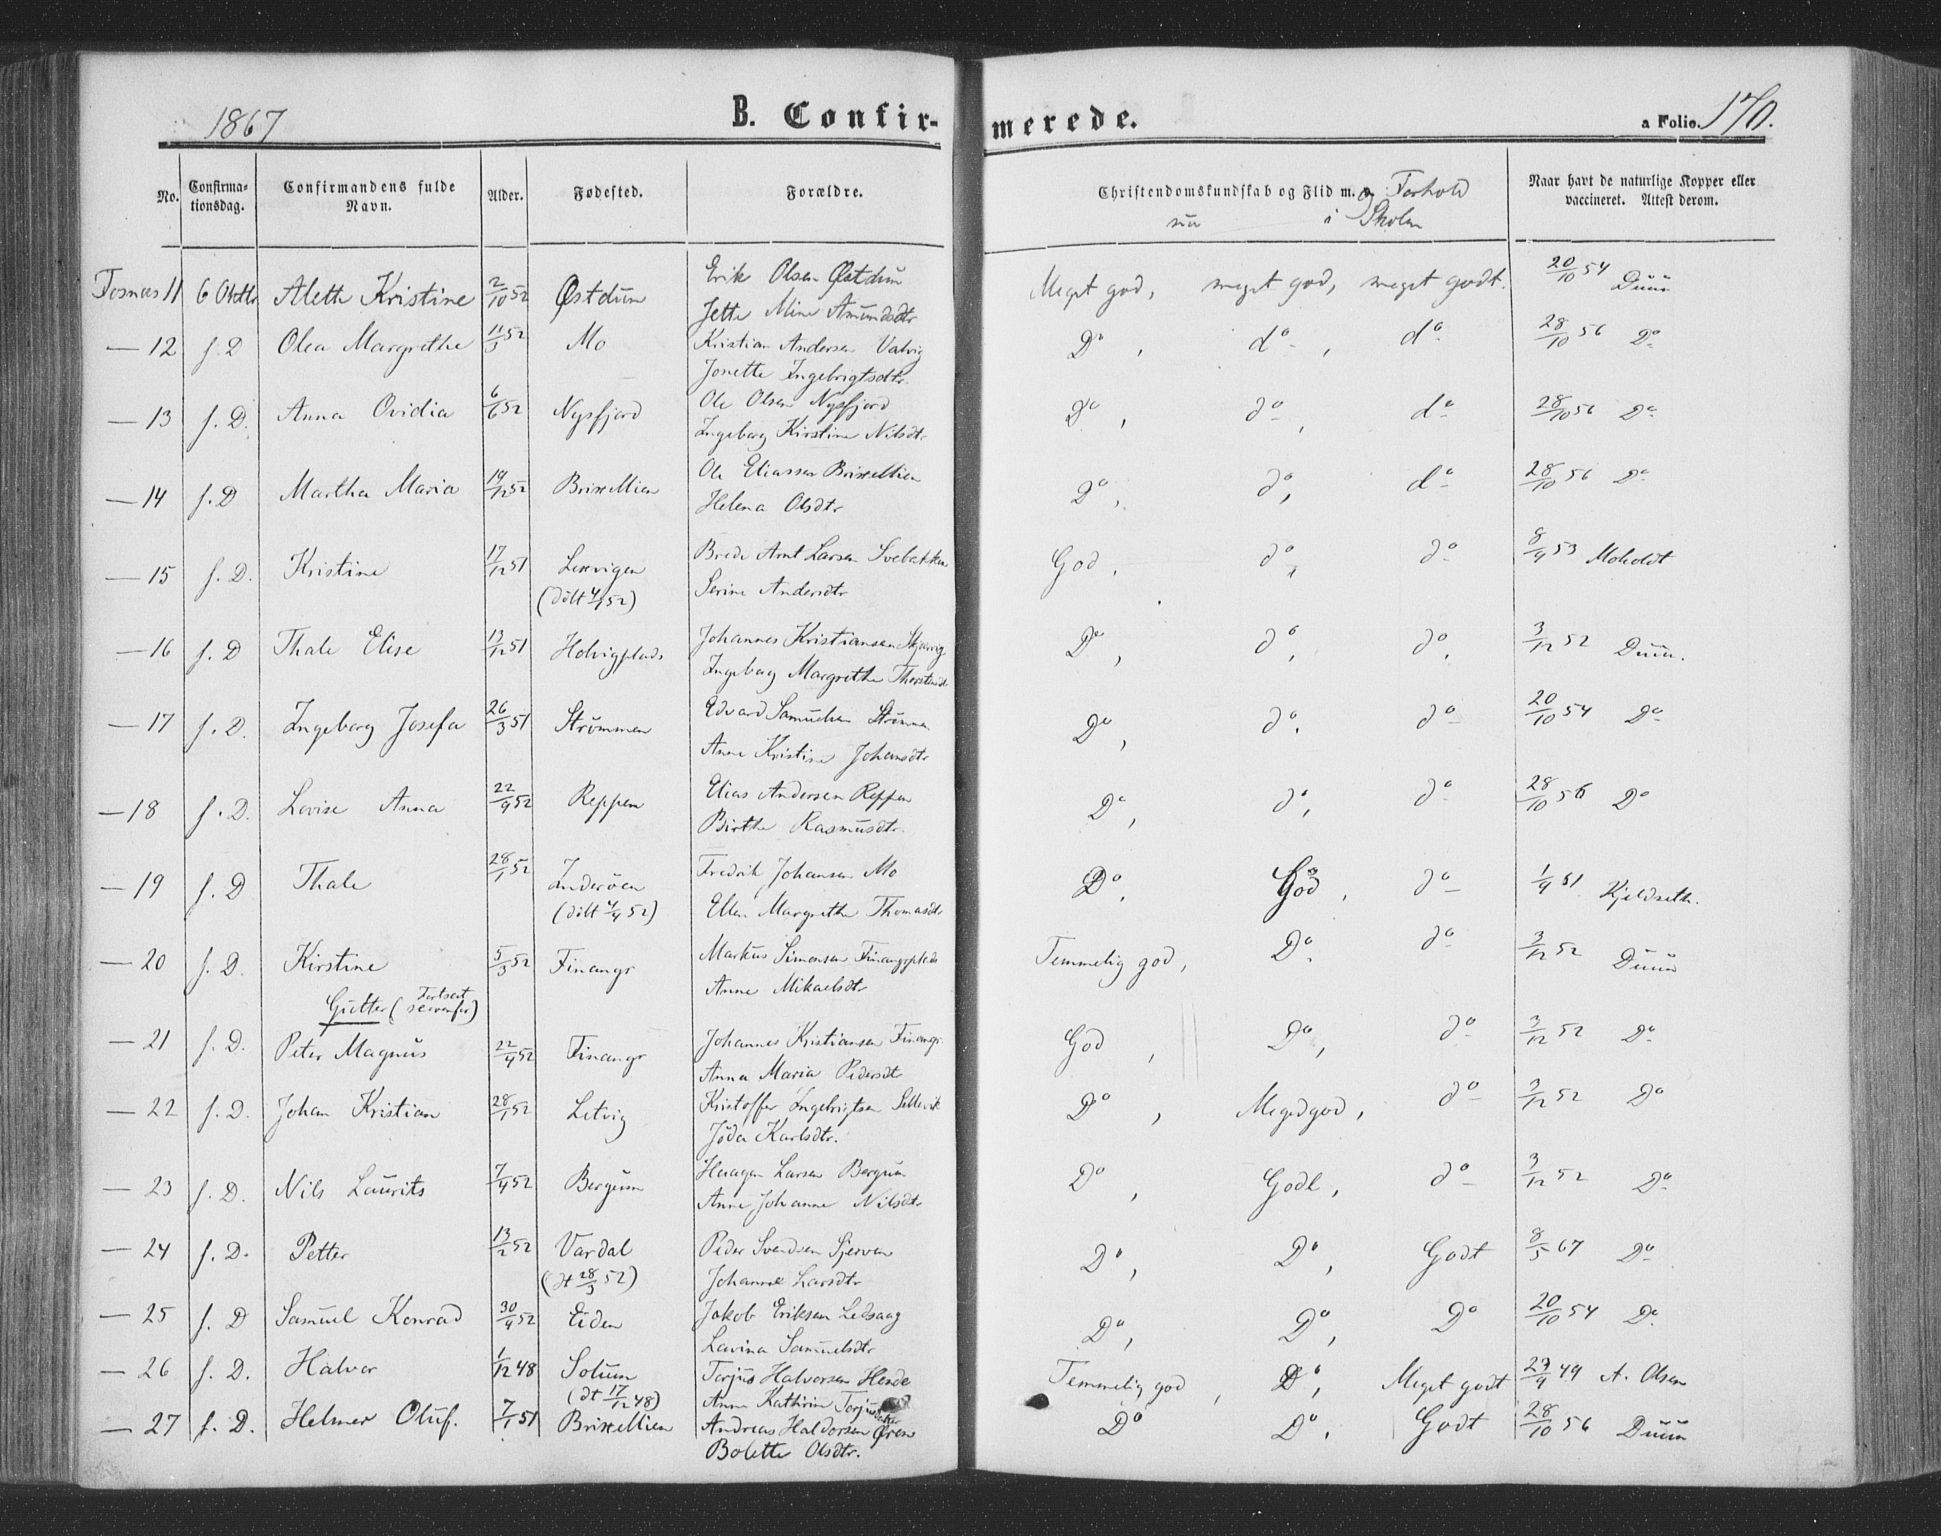 1867
B. Confirmerede.
a Folio. 170.
No. | Confirmationsdag. | Confirmandens fulde Navn. | Alder. | Fødested. | Forældre. | Christendomskundskab og Flid m. og Forhold i Skolen | Naar havt de naturlige Kopper eller vaccineret. Attest derom.
Fosnæs 11 | 6 Oktbr | Aleth Kristine | 2/10 52 | Østdun | Erik Olsen Østdun
Jette Mine Amundsdtr | Meget god, meget god, meget godt. | 20/10 54 Duun
— 12 | f. D | Olea Margrethe | 11/3 52 | Mo | Kristian Andersen Valvig
Jonette Ingebrigtsdtr. | Do, do, do | 28/10 56 Do
— 13 | f. D. | Anna Ovidia | 6/6 52 | Nysfjord | Ole Olsen Nysfjord
Ingeborg Kirstine Nilsdtr | Do, do, do | 28/10 56 Do
— 14 | f. D | Martha Maria | 19/12 52 | Brixellien | Ole Eliassen Brixellien
Helena Olsdtr | Do, do, do | 28/10 56 Do
— 15 | f. D. | Kristine | 17/12 51 | Lexvigen
(døbt 4/1 52) | Brede Arnt Larsen Svebakken
Serine Andersdtr | God, do, do | 8/9 53 Moholdt
— 16 | f. D | Thale Elise | 13/12 51 | Holvigplads | Johannes Kristiansen Skjærvig
Ingeborg Margrethe | Do, do, do, | 3/12 52 Duun.
— 17 | f. D. | Ingeborg Josefa | 26/3 51 | Strømmen | Edvard Samuelsen Strømmen
Anne Kristine Johansdtr | Do, do, do | 20/10 54 Do
— 18 | f. D. | Lovise Anna | 22/9 52 | Reppen | Elias Andersen Reppen
Birthe Rasmusdtr. | Do, do, do | 28/10 56 Do
— 19 | f. D | Thale | 28/1 52 | Inderøen
(døbt 4/4 52) | Fredrik Johansen Mo
Ellen Margrethe Thomasdtr | Do, God, do | 1/9 51 Kjeldseth.
— 20 | f. D. | Kirstine | 5/3 52 | Finangr | Markus Simonsen Finangrplads
Anne Mikaelsdtr | Temmelig god, Do. do | 3/12 52 Duun
Gutter (Fortsat
— 21 | f. D. | Peter Magnus | 22/4 52 | Finangr | Johannes Kristiansen Finangr
Anna Maria Pedersdtr | God, Do, do | 3/12 52 Do
— 22 | f. D. | Johan Kristian | 28/1 52 | Letvig | Kristoffer Ingebrigtsen
Karlsdtr. | Do, Meget god, do | 3/12 52 Do
— 23 | f. D. | Nils Laurits | 7/4 52 | Bergum | Haagen Larsen Bergum
Anne Johanne Nilsdtr | Do, God, do | 3/12 52 Do
— 24 | f. D. | Petter | 13/2 52 | Vardal
(dt 28/3 52) | Peder Svendsen Sjerven
Johanne Larsdtr | Do, Do, Godt | 8/5 67 Do
— 25 | f. D | Samuel Konrad | 30/9 52 | Eiden | Jakob Eriksen Ledsaag
Lavina Samuelsdtr | Do, Do, Do | 20/10 54 Do
— 26 | f. D. | Halvor | 1/12 48 | Solum
(dt 17/12 48) | Torjus Halvorsen Hende
Anne Kathrin | Temmelig god, Do, Meget godt | 23/9 49 A. Olsen
— 27 | f. D. | Helmer Oluf. | 7/1 51 | Brixellien | Andreas Haldorsen Øren
Bolette Olsdtr. | Do Do, Godt | 28/10 56 Duun